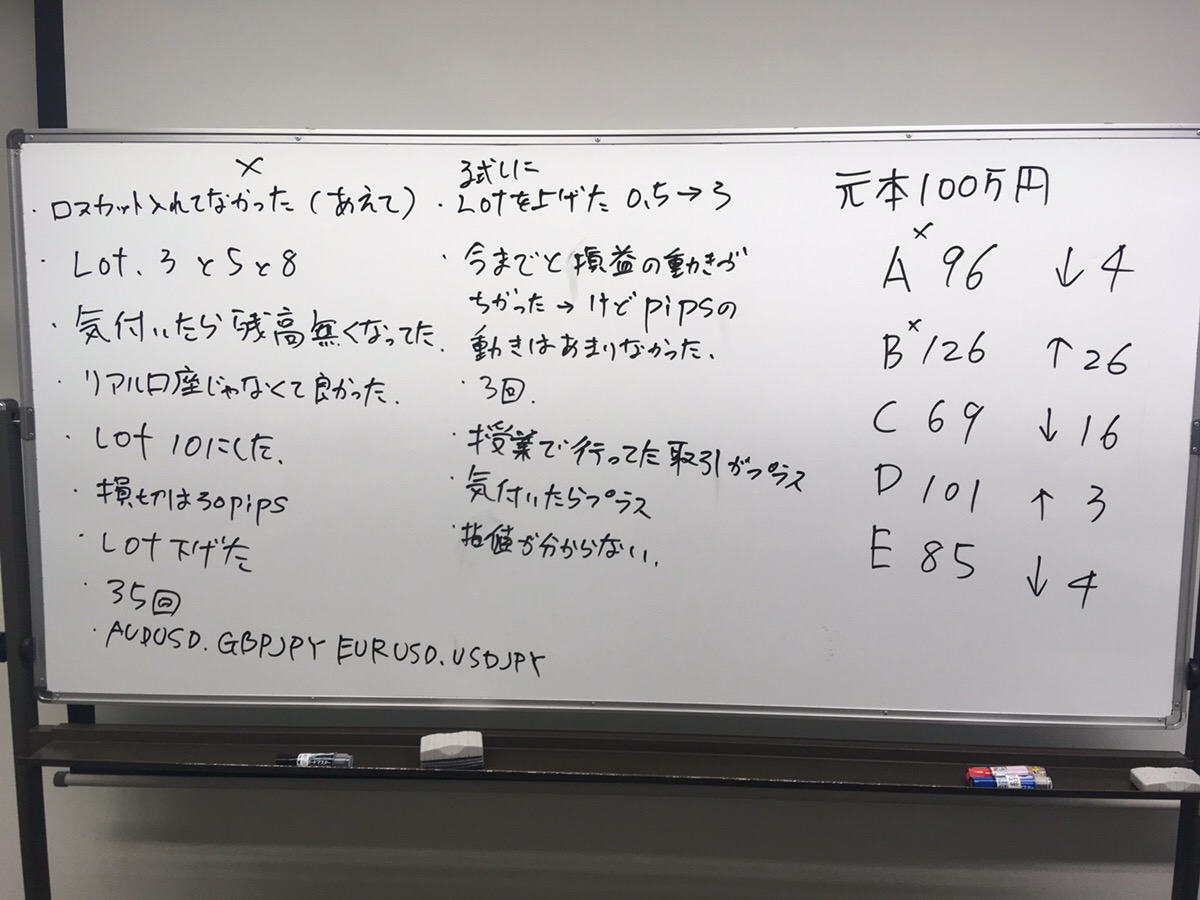 ×
・ロスカット入れてなかった(あえて)
・Lot、3と5と8
・気付いたら残高無くなってた.
・リアル口座じゃなくて良かった.
・Lot 10にした.
・損切は30pips
・Lot下げた
・35回
・AUDUSD. GBPJPY EURUSD. USDJPY
試しに
・Lotを上げた 0.5→3
・今までと損益の動きが
ちがった→けどpipsの
動きはあまりなかった、
・3回.
・授業で行ってた取引がプラス
・気付いたらプラス
・指値が分からない.
元本100万円
A× 96 ↓4
B× 126 ↑26
C 69 ↓16
D 101 ↑3
E 85 ↓4